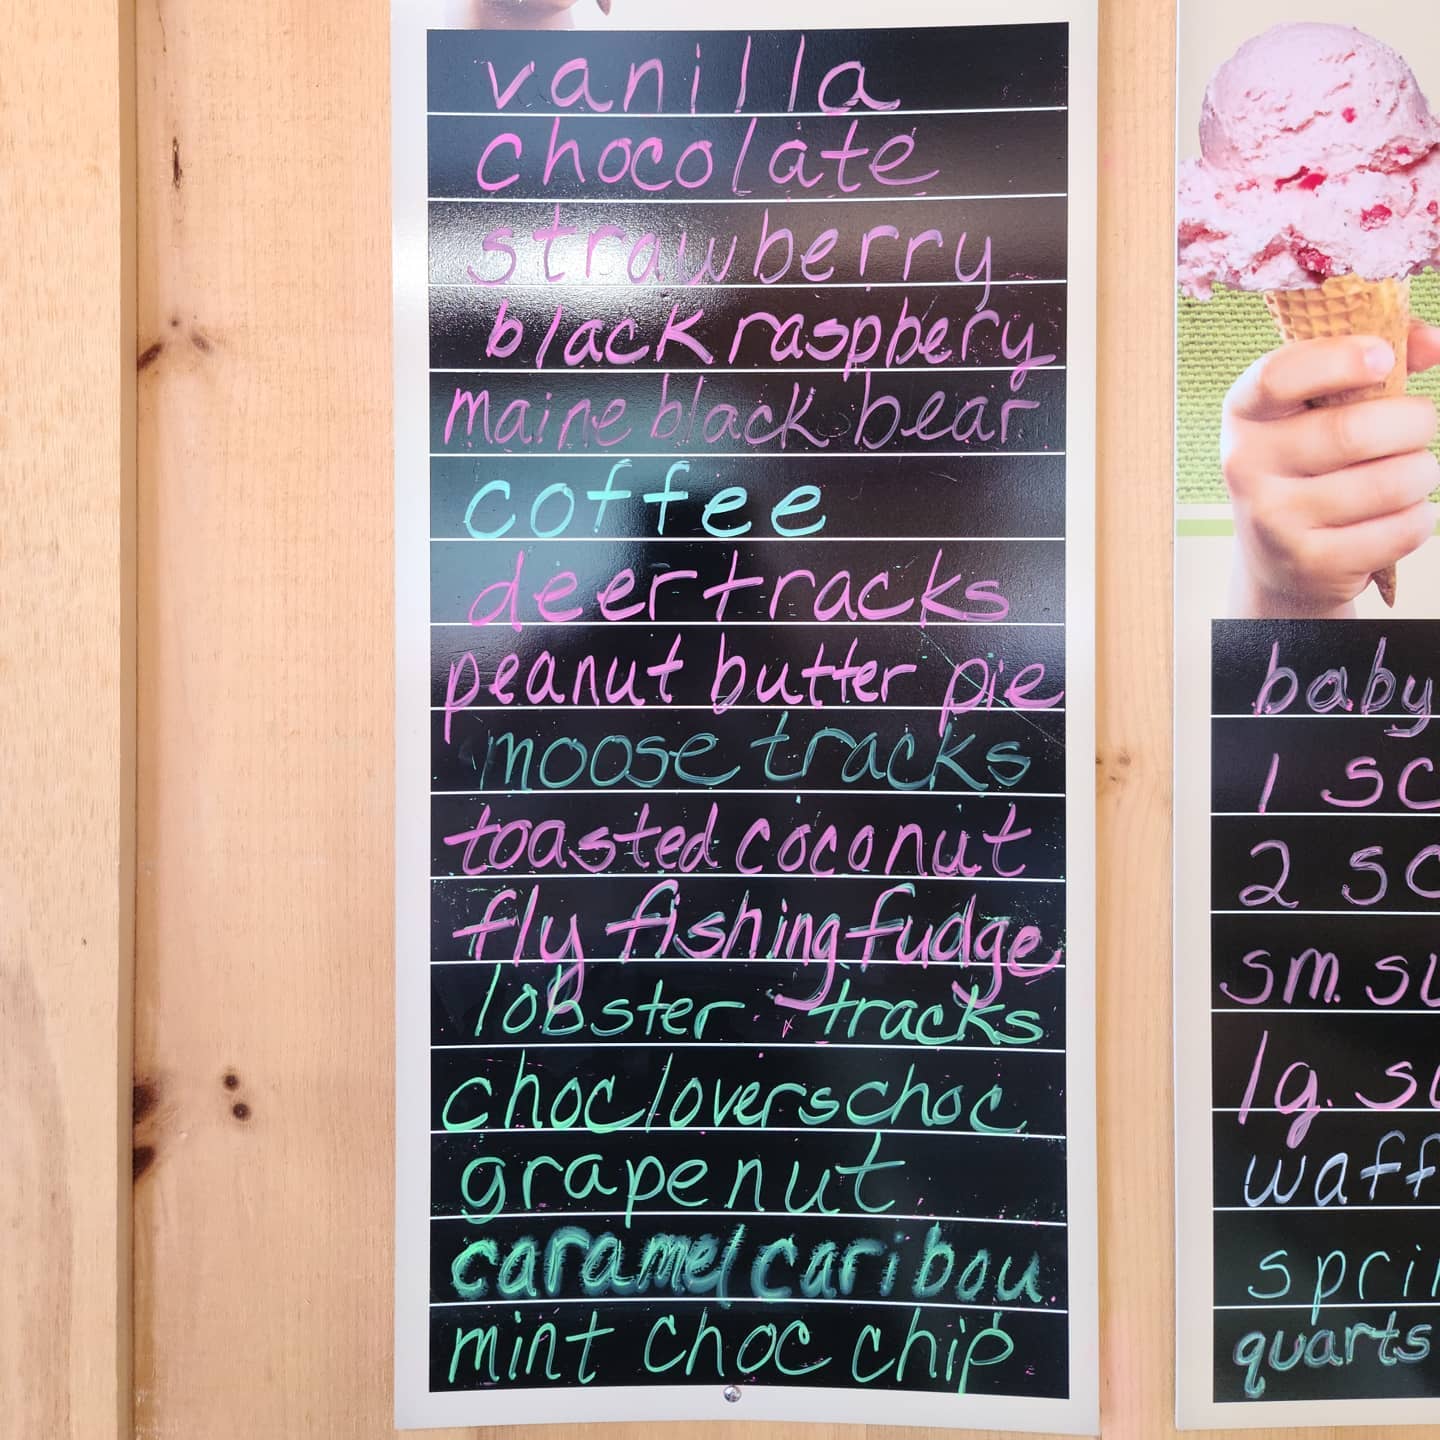 vanilla
chocolate
strawberry
black raspbery
maine black bear
coffee
deer tracks
peanut butter pie
moose tracks
toasted coconut
fly fishing fudge
lobster tracks
choc lovers choc
grapenut
caramel caribou
mint choc chip
baby
1 sc
2 sc
sm. su
lg. su
waff
sprin
quarts